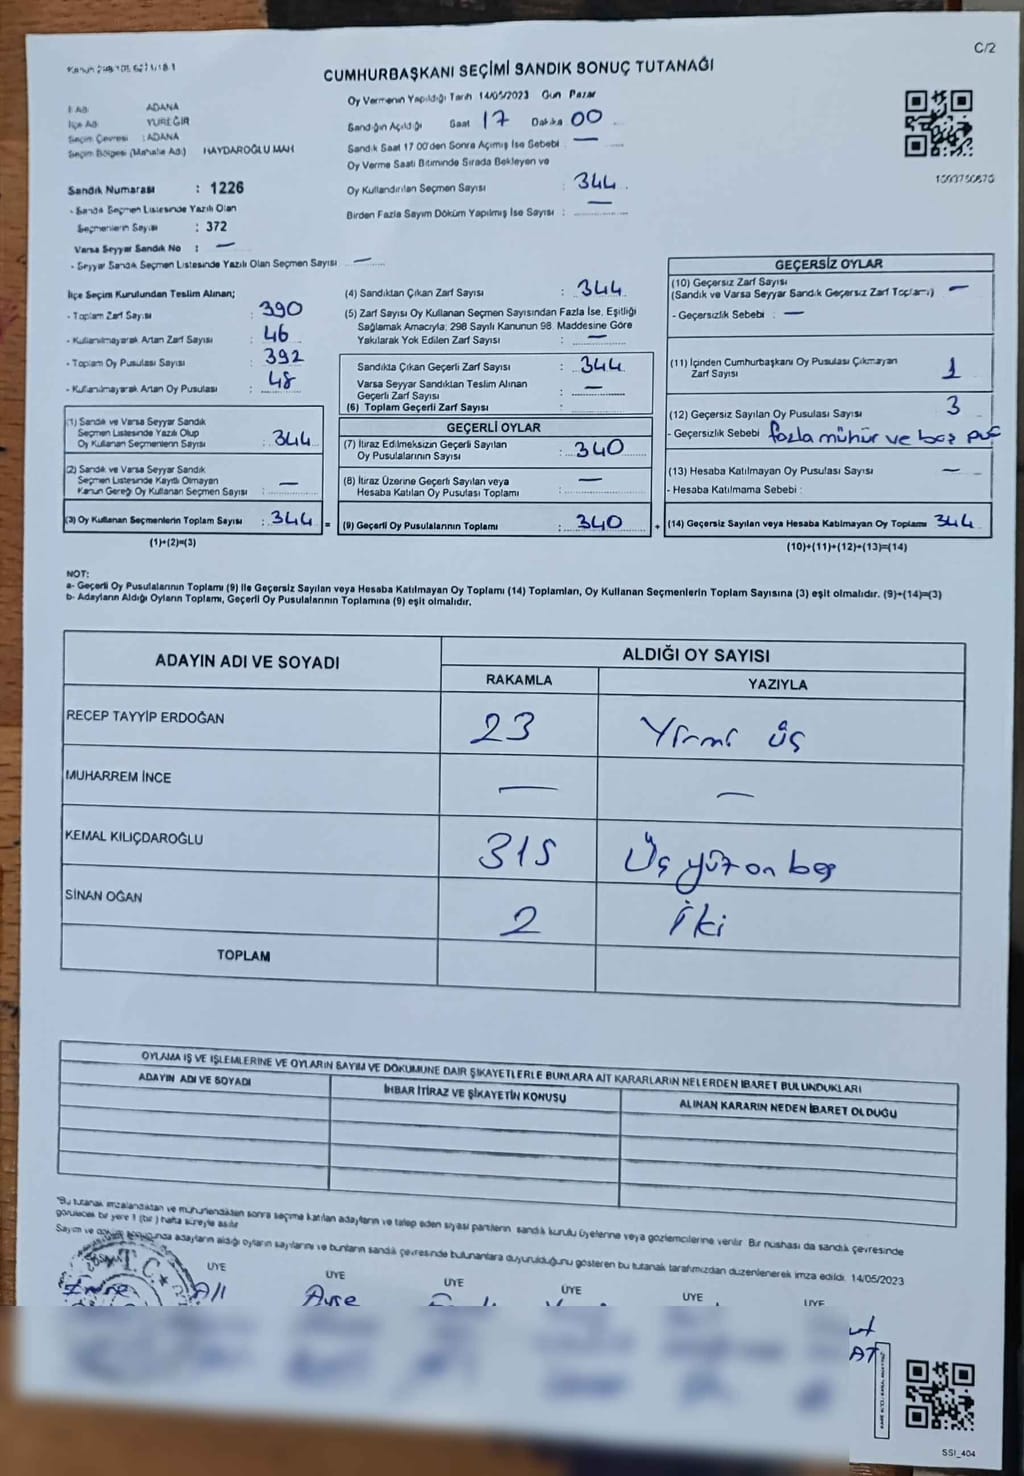 C/2
CUMHURBAŞKANI SEÇİMİ SANDIK SONUÇ TUTANAĞI
Oy Vermenin Yapıldığı Tarih 14/05/2023 Gün Pazar
İl Adı ADANA
İlçe Adı YÜREĞİR
Seçim Çevresi : ADANA
Seçim Bölgesi (Mahalle Adı) HAYDAROĞLU MAH
Sandığın Açıldığı Saat 17 Dakika 00
Sandık Saat 17 00'den Sonra Açılmış İse Sebebi : —
Oy Verme Saati Bitiminde Sırada Bekleyen ve
Oy Kullandırılan Seçmen Sayısı : 344
Birden Fazla Sayım Döküm Yapılmış İse Sayısı : —
Sandık Numarası : 1226
- Sandık Seçmen Listesinde Yazılı Olan
Seçmenlerin Sayısı : 372
Varsa Seyyar Sandık No : —
- Seyyar Sandık Seçmen Listesinde Yazılı Olan Seçmen Sayısı —
İlçe Seçim Kurulundan Teslim Alınan;
- Toplam Zarf Sayısı : 390
- Kullanılmayarak Artan Zarf Sayısı : 46
- Toplam Oy Pusulası Sayısı : 392
- Kullanılmayarak Artan Oy Pusulası : 48
(1) Sandık ve Varsa Seyyar Sandık
Seçmen Listesinde Yazılı Olup
Oy Kullanan Seçmenlerin Sayısı : 344
(2) Sandık ve Varsa Seyyar Sandık
Seçmen Listesinde Kayıtlı Olmayan
Kanun Gereği Oy Kullanan Seçmen Sayısı : —
(3) Oy Kullanan Seçmenlerin Toplam Sayısı : 344 =
(1)+(2)=(3)
(4) Sandıktan Çıkan Zarf Sayısı : 344
(5) Zarf Sayısı Oy Kullanan Seçmen Sayısından Fazla İse, Eşitliği
Sağlamak Amacıyla; 298 Sayılı Kanunun 98. Maddesine Göre
Yakılarak Yok Edilen Zarf Sayısı : —
Sandıkta Çıkan Geçerli Zarf Sayısı : 344
Varsa Seyyar Sandıktan Teslim Alınan
Geçerli Zarf Sayısı : —
(6) Toplam Geçerli Zarf Sayısı :
GEÇERLİ OYLAR
(7) İtiraz Edilmeksizin Geçerli Sayılan
Oy Pusulalarının Sayısı : 340
(8) İtiraz Üzerine Geçerli Sayılan veya
Hesaba Katılan Oy Pusulası Toplamı : —
(9) Geçerli Oy Pusulalarının Toplamı : 340 +
GEÇERSİZ OYLAR
(10) Geçersiz Zarf Sayısı
(Sandık ve Varsa Seyyar Sandık Geçersiz Zarf Toplamı) —
- Geçersizlik Sebebi : —
(11) İçinden Cumhurbaşkanı Oy Pusulası Çıkmayan
Zarf Sayısı 1
(12) Geçersiz Sayılan Oy Pusulası Sayısı 3
- Geçersizlik Sebebi fazla mühür ve boş pus
(13) Hesaba Katılmayan Oy Pusulası Sayısı —
- Hesaba Katılmama Sebebi :
(14) Geçersiz Sayılan veya Hesaba Katılmayan Oy Toplamı 344
(10)+(11)+(12)+(13)=(14)
NOT:
a- Geçerli Oy Pusulalarının Toplamı (9) ile Geçersiz Sayılan veya Hesaba Katılmayan Oy Toplamı (14) Toplamları, Oy Kullanan Seçmenlerin Toplam Sayısına (3) eşit olmalıdır. (9)+(14)=(3)
b- Adayların Aldığı Oyların Toplamı, Geçerli Oy Pusulalarının Toplamına (9) eşit olmalıdır.
ADAYIN ADI VE SOYADI
ALDIĞI OY SAYISI
RAKAMLA YAZIYLA
RECEP TAYYİP ERDOĞAN 23 Yirmi üç
MUHARREM İNCE — —
KEMAL KILIÇDAROĞLU 315 Üç yüz on beş
SİNAN OĞAN 2 İki
TOPLAM
OYLAMA İŞ VE İŞLEMLERİNE VE OYLARIN SAYIM VE DÖKÜMÜNE DAİR ŞİKAYETLERLE BUNLARA AİT KARARLARIN NELERDEN İBARET BULUNDUKLARI
ADAYIN ADI VE SOYADI İHBAR İTİRAZ VE ŞİKAYETİN KONUSU ALINAN KARARIN NEDEN İBARET OLDUĞU
*Bu tutanak imzalandıktan ve mühürlendikten sonra seçime katılan adayların ve talep eden siyasi partilerin sandık kurulu üyelerine veya gözlemcilerine verilir. Bir nüshası da sandık çevresinde
görülecek bir yere 1 (bir) hafta süreyle asılır
Sayım ve döküm sonucunda adayların aldığı oyların sayılarını ve bunların sandık çevresinde bulunanlara duyurulduğunu gösteren bu tutanak tarafımızdan düzenlenerek imza edildi. 14/05/2023
ÜYE ÜYE ÜYE ÜYE ÜYE ÜYE
T.C.
Ali Ayşe
SSI_404